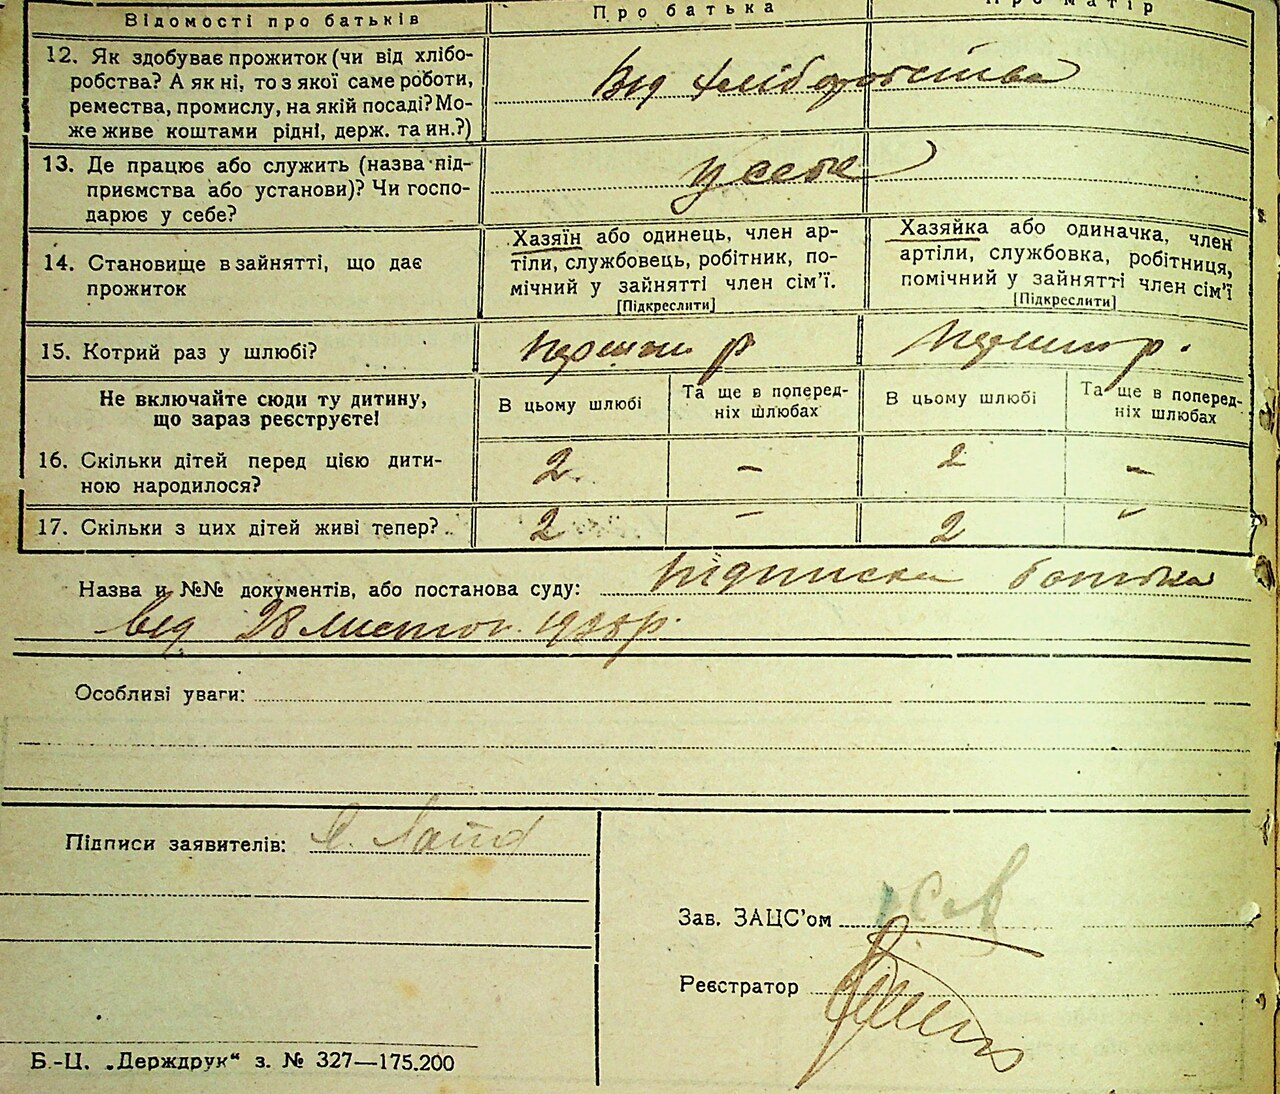 Відомості про батьків
Про батька
Про матір
12. Як здобуває прожиток (чи від хлібо-
робства? А як ні, то з якої саме роботи,
ремества, промислу, на якій посаді? Мо-
же живе коштами рідні, держ. та ин.?)
Від хліборобства
13. Де працює або служить (назва під-
приємства або установи)? Чи госпо-
дарює у себе?
у себе
14. Становище в зайнятті, що дає
прожиток
Хазяїн або одинець, член ар-
тіли, службовець, робітник, по-
мічний у зайнятті член сім'ї.
[Підкреслити]
Хазяйка або одиначка, член
артіли, службовка, робітниця,
помічний у зайнятті член сім'ї
[Підкреслити]
15. Котрий раз у шлюбі?
перший р
перший р.
Не включайте сюди ту дитину,
що зараз реєструєте!
В цьому шлюбі
Та ще в поперед-
ніх шлюбах
В цьому шлюбі
Та ще в поперед-
ніх шлюбах
16. Скільки дітей перед цією дити-
ною народилося?
2 - 2 -
17. Скільки з цих дітей живі тепер?..
2 - 2 -
Назва и №№ документів, або постанова суду: підписка батька
від 28 листоп.
Особливі уваги:
Підписи заявителів:
Зав. ЗАЦС'ом
Реєстратор
Б.-Ц. „Держдрук“ з. № 327—175.200